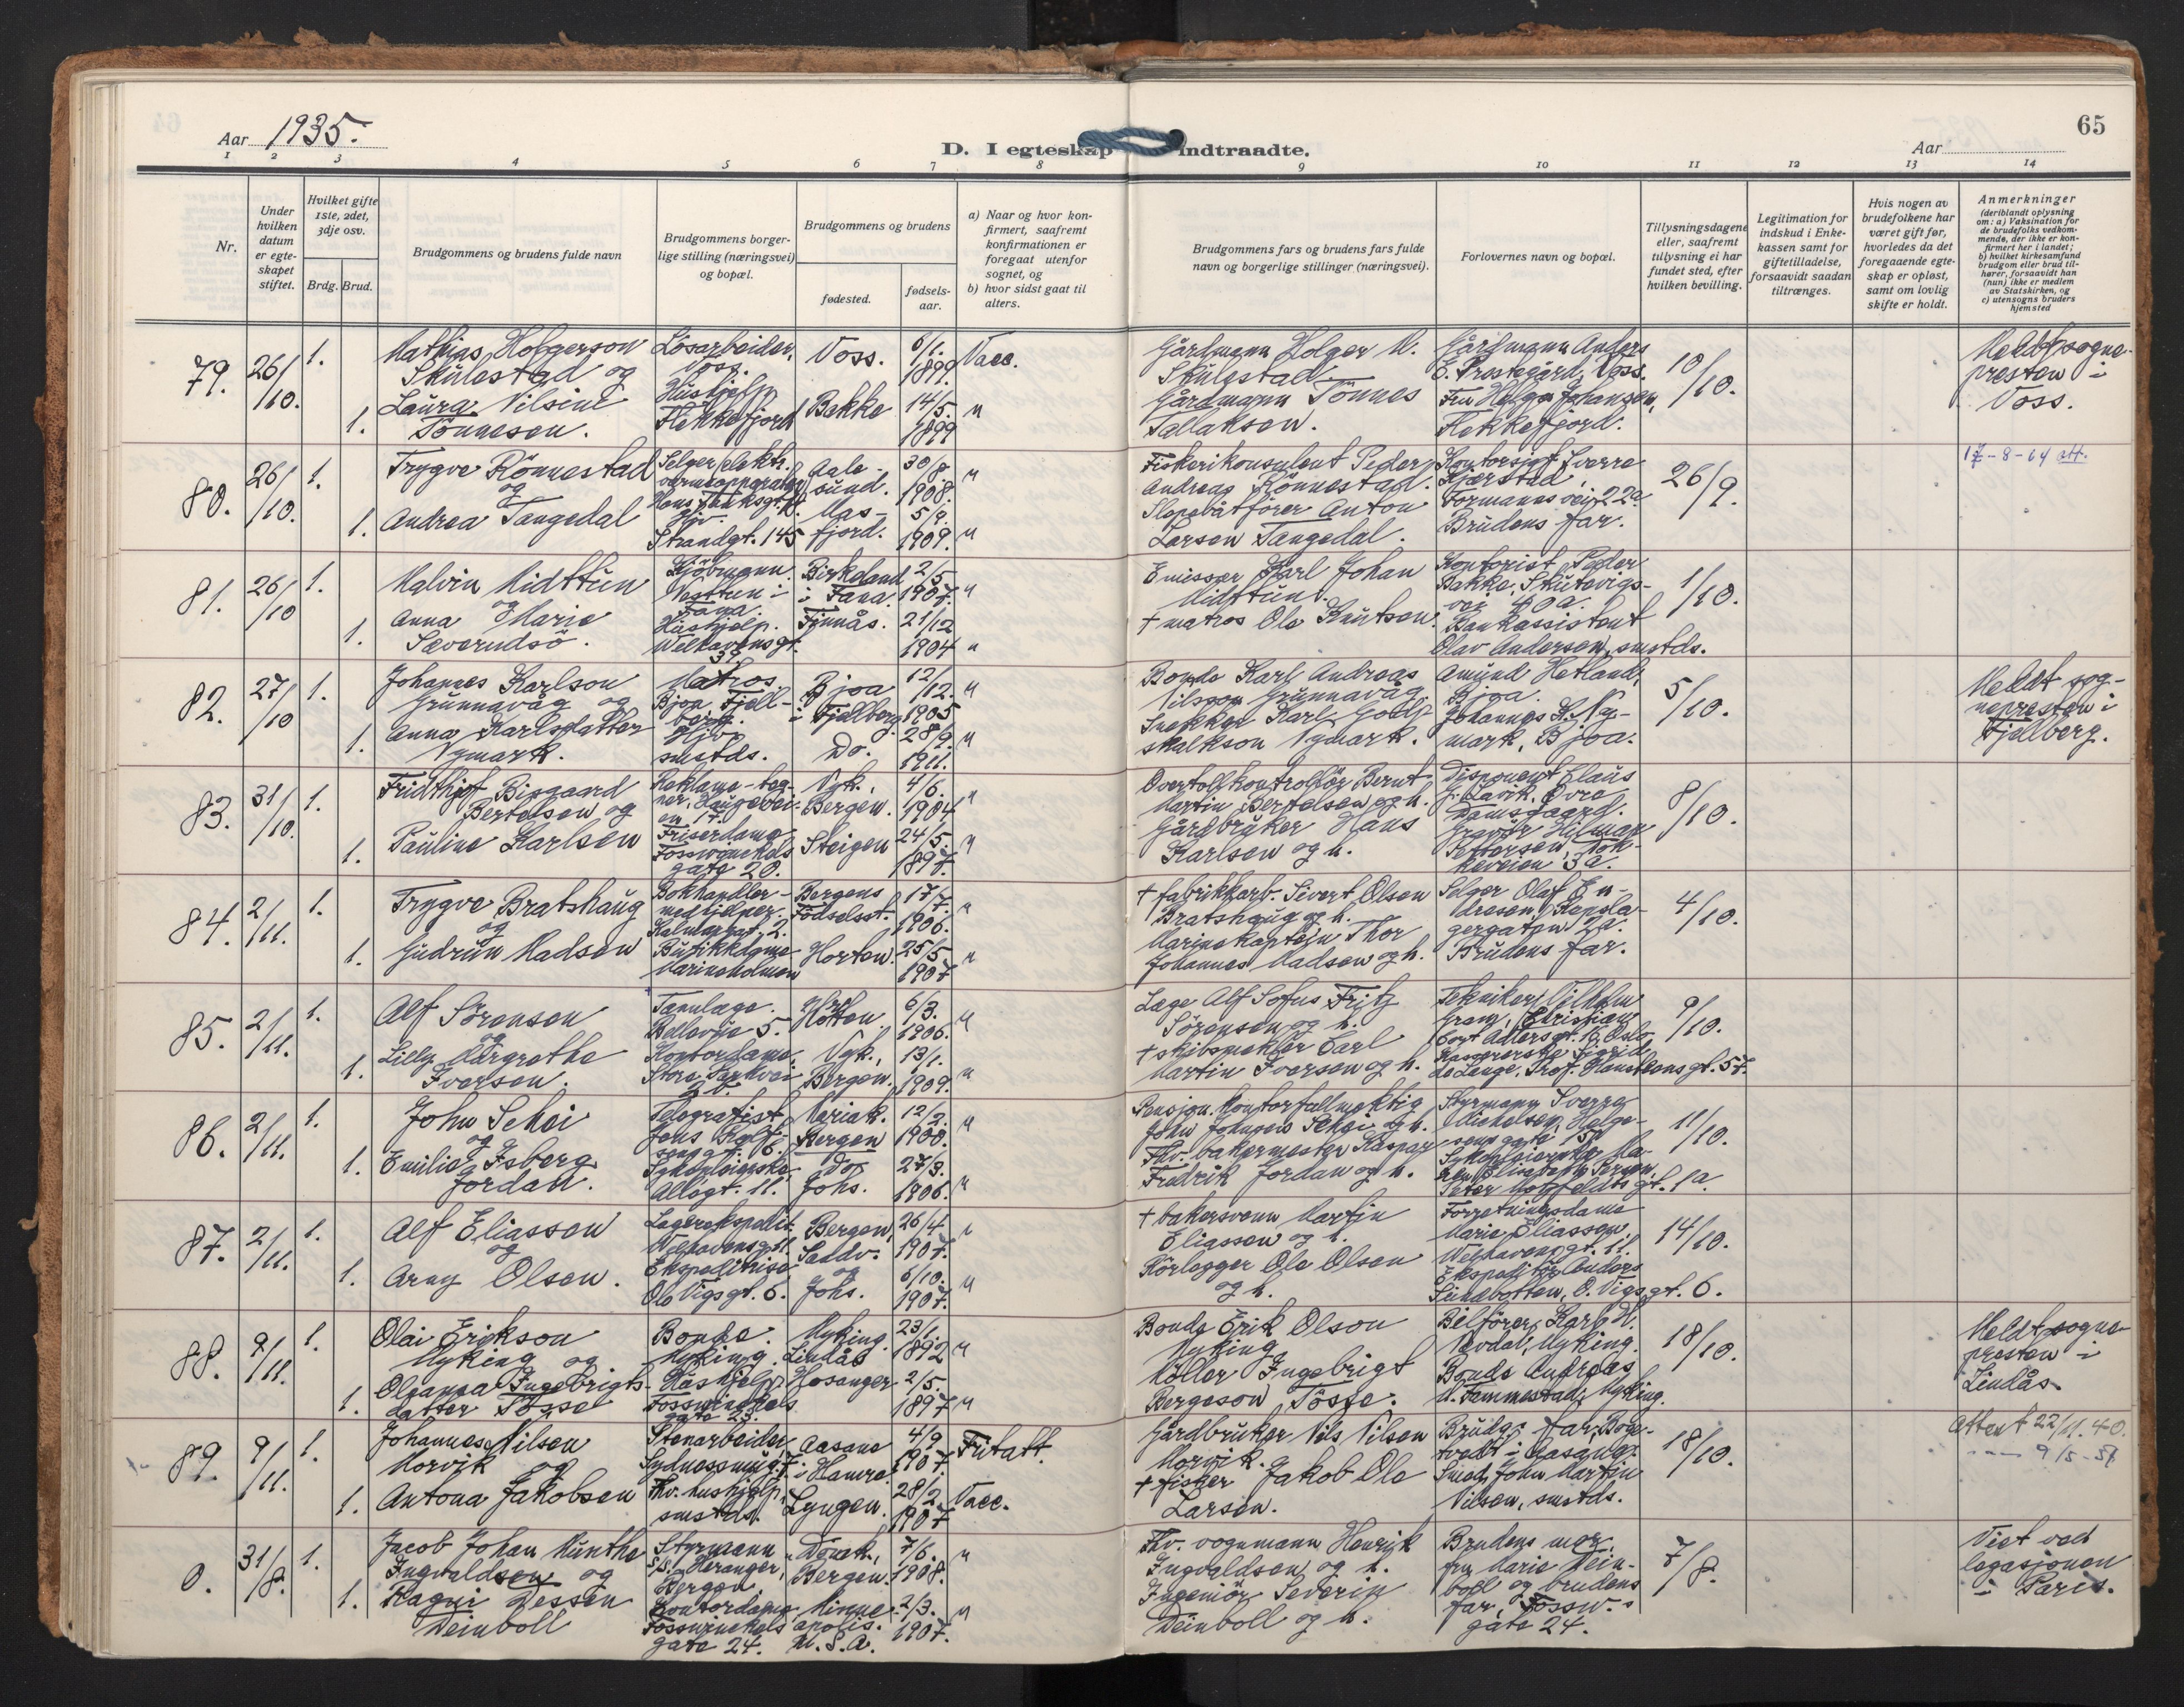 Aar 1935.
D. I egteskap indtraadte.
Aar
65
1 2 3 4 5 6 7 8 9 10 11 12 13 14
Nr.
Under hvilken datum er egteskapet stiftet.
Hvilket gifte 1ste, 2det, 3dje osv.
Brdg. Brud.
Brudgommens og brudens fulde navn
Brudgommens borgerlige stilling (næringsvei) og bopæl.
Brudgommens og brudens
fødested.
fødselsaar.
a) Naar og hvor konfirmert, saafremt konfirmationen er foregaat utenfor sognet, og
b) hvor sidst gaat til alters.
Brudgommens fars og brudens fars fulde navn og borgerlige stillinger (næringsvei).
Forlovernes navn og bopæl.
Tillysningsdagene eller, saafremt tillysning ei har fundet sted, efter hvilken bevilling.
Legitimation for indskud i Enkekassen samt for giftetilladelse, forsaavidt saadan tiltrænges.
Hvis nogen av brudefolkene har været gift før, hvorledes da det foregaaende egteskap er opløst, samt om lovlig skifte er holdt.
Anmerkninger
(deriblandt oplysning om: a) Vaksination for de brudefolks vedkommende, der ikke er konfirmert her i landet; b) hvilket kirkesamfund brudgom eller brud tilhører, forsaavidt han (hun) ikke er medlem av Statskirken, og c) utensogns bruders hjemsted
79. 26/10. 1. Mathias Holgerson Skulestad og
Lösarbeider, Voss.
Voss. 6/1. 1899. Vacc.
Gårdmann Holger M. Skulestad.
Gårdmann Anders E. Prestegård, Voss.
10/10.
Meldt sognepresten i Voss.
1. Laura Nilsine Tönnesen.
Hushjelp Flekkefjord
Bakke 14/5. 1899 "
Gårdmann Tönnes Tallaksen.
Fru Helga Johansen, Flekkefjord.
80. 26/10. 1. Trygve Rönnestad og
Selger elektr. varmeapparater
Aalesund. 30/8 1908. "
Fiskerikonsulent Peder Andreas Rönnestad.
Kontorsjef Sverre Kjærstad, Formanns vei 22a.
26/9.
17-8-64 att.
1. Andrea Tangedal
Hjv. Strandgt. 145
Masfjord. 5/9. 1909. "
Slepebåtförer Anton Larsen Tangedal.
Brudens far.
81. 26/10 1. Malvin Midttun og
Sjömann. Nesttun i Fana.
Birkeland i Fana. 2/5 1907. "
Emissær Karl Johan Midttun.
Kontorist Peder Bakke, Skutevigsvei 40a.
1/10.
1. Anna Marie Sæverudsö.
Hushjelp. Welhavensgt. 39
21/12 1904 "
+ matros Ole Knutsen.
Bankassistent Olav Andersen, smstds.
82. 27/10 1. Johannes Karlson Grunnavåg og
Matros Bjoa, Fjellberg.
Bjoa i Fjellberg 12/12. 1905 "
Bonde Karl Andreas Nilsson Grunnavåg
Amund Hetland, Bjoa.
5/10.
Meldt sognepresten i Fjellberg.
1. Anna Karlsdatter Nymark.
Hjv. smstds.
Do. 28/9. 1911. "
Snekker Karl Godskalkson Nymark.
Johannes K. Nymark, Bjoa.
83. 31/10. 1. Fridthjof Bisgaard Bertelsen og
Reklame-tegner, Haugeveien 17.
Nyk., Bergen. 4/6. 1904 "
Overtollkontrollör Bernt Martin Bertelsen og h.
Disponent Claus G. Lavik, Övre Damsgaard.
8/10.
1. Pauline Karlsen
Friserdame Fosswinckels gate 20.
Steigen 24/5. 1897. "
Gårdbruker Hans Karlsen og h.
Gravör Hilmar Pettersen,
84. 2/11. 1. Trygve Bratshaug og
Bokhandler-medhjelper. Kalmargt. 2.
Bergens Födselsst. 17/7. 1906. "
+ fabrikkarb. Sivert Olsen Bratshaug og h.
Selger Olaf Endresen,
4/10.
1. Gudrun Madsen
Butikkdame Marineholmen
Horten. 25/5 1907 "
Marinekaptein Thor Johannes Madsen og h.
Brudens far.
85. 2/11. 1. Alf Sörensen og
Tannlæge. Bellevue 5.
Horten 6/3. 1906. "
Læge Alf Sofus Fritz Sörensen og h.
Tekniker Vilhelm Gram, Cort Adlersgt. 16, Oslo
9/10.
1. Lilly Margrethe Iversen.
Kontordame, Store Parkvei
Nyk., Bergen. 13/1. 1909. "
+ skibsmekler Carl Martin Iversen og h.
Kassererske Sigrid de Lange, Prof. Hansteensgt. 57.
86. 2/11. 1. John Schei og
Telegrafist
Mariak. Bergen 12/2. 1900. "
Pensjon. kontorfullmektig John Johnsen Schei og h.
Styrmann Sverre Michelsen, Helgesens gate
11/10.
1. Emilie Isberg Jordan.
Sykepleierske, Allégt. 11.
Do Johs. 27/3. 1906. "
Fhv. bakermester Kaspar Fredrik Jordan og h.
Sykepleierske Peter Motzfeldts gt. 1a.
87. 2/11. 1. Alf Eliassen og
Lagerekspedit. Welhavensgt. 11.
Bergen, Sandv. 26/4 1907. "
+ bakersvenn Martin Eliassen og h.
Forretningsdame Marie Eliassen, Welhavensgt. 11.
14/10.
1. Arny Olsen.
Ekspeditrise Ole Vigs gt. 6.
og Johs. 6/10. 1907. "
Rörlegger Ole Olsen og h.
Ekspeditör Anders Sundbotten, O. Vigs gt. 6.
88. 9/11. 1. Olai Erikson Myking og
Bonde. Myking.
Myking. Lindås 23/1. 1892 "
Bonde Erik Olson Myking
Bilförer Karl H. Nevdal, Myking.
18/10.
Meldt sognepresten i Lindås.
1. Oleanna Ingebrigtsdatter Tösse
Hushjelp Fosswinckels gate 23.
Hosanger 2/5. 1897 "
Möller Ingebrigt Bergeson Tösse.
Bonde Andreas M. Fammestad, Myking.
89. 9/11. 1. Johannes Nilsen Morvik og
Stenarbeider, Sydnessmug 7.
Aasane i Hamre. 4/9 1907. Fritatt.
Gårdbruker Nils Nilsen Morvik.
18/10.
Attest 22/11.40.
---- 9/5-51
1. Antona Jakobsen
Fhv. hushjelp. smstds.
Lyngen. 28/2 1907 Vacc.
+ fisker Jakob Ole Larsen.
Smed John Martin Nilsen, smstds.
0. 31/8. 1. Jacob Johan Munthe Ingvaldsen og
Styrmann S/S. Heranger, Bergen.
Domk., Bergen. 7/6. 1908. "
Fhv. vognmann Henrik Ingvaldsen og h.
Brudens mor. fru Marie Deinboll og brudens far, Fossw.s gate 24.
7/8.
Viet ved legasjonen i Paris.
1. Ragni Dessen Deinboll
Kontordame Fosswinckels gate 24.
Minneapolis. U.S.A. 2/3. 1907. "
Ingeniör Severin Deinboll og h.